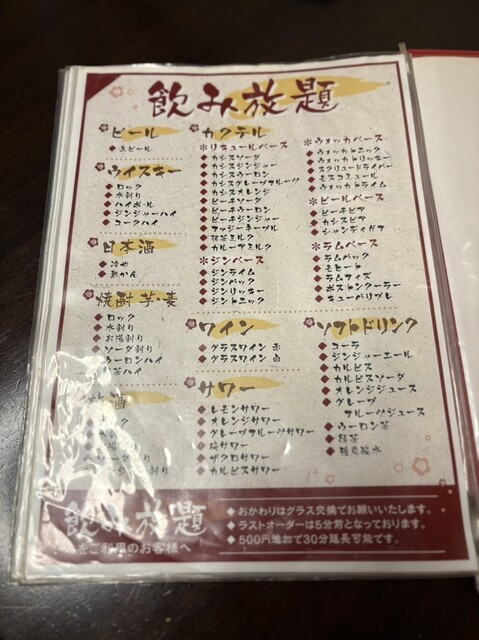 飲み放題
ビール
生ビール
ウイスキー
ロック
水割り
ハイボール
ジンジャーハイ
コークハイ
日本酒
冷や
熱かん
焼酎 芋・麦
ロック
水割り
お湯割り
ソーダ割り
ウーロンハイ
茶ハイ
酒
ック
割り
カクテル
※リキュールベース
カシスソーダ
カシスジンジャー
カシスウーロン
カシスグレープフルーツ
カシスオレンジ
ピーチソーダ
ピーチウーロン
ピーチジンジャー
ファジーネーブル
抹茶ミルク
カルーアミルク
※ジンベース
ジンライム
ジンバック
ジンリッキー
ジントニック
ワイン
グラスワイン 赤
グラスワイン 白
サワー
レモンサワー
オレンジサワー
グレープフルーツサワー
梅サワー
ザクロサワー
カルピスサワー
※ウォッカベース
ウォッカトニック
ウォッカリッキー
スクリュードライバー
モスコミュール
ウォッカライム
※ビールベース
ピーチビア
カシスビア
シャンディガフ
※ラムベース
ラムバック
モヒート
ラムフィズ
ボストンクーラー
キューバリブレ
ソフトドリンク
コーラ
ジンジャーエール
カルピス
カルピスソーダ
オレンジジュース
グレープ
フルーツジュース
ウーロン茶
緑茶
強炭酸水
飲み放題
をご利用のお客様へ
おかわりはグラス交換でお願いいたします。
ラストオーダーは5分前となっております。
500円追加で30分延長可能です。